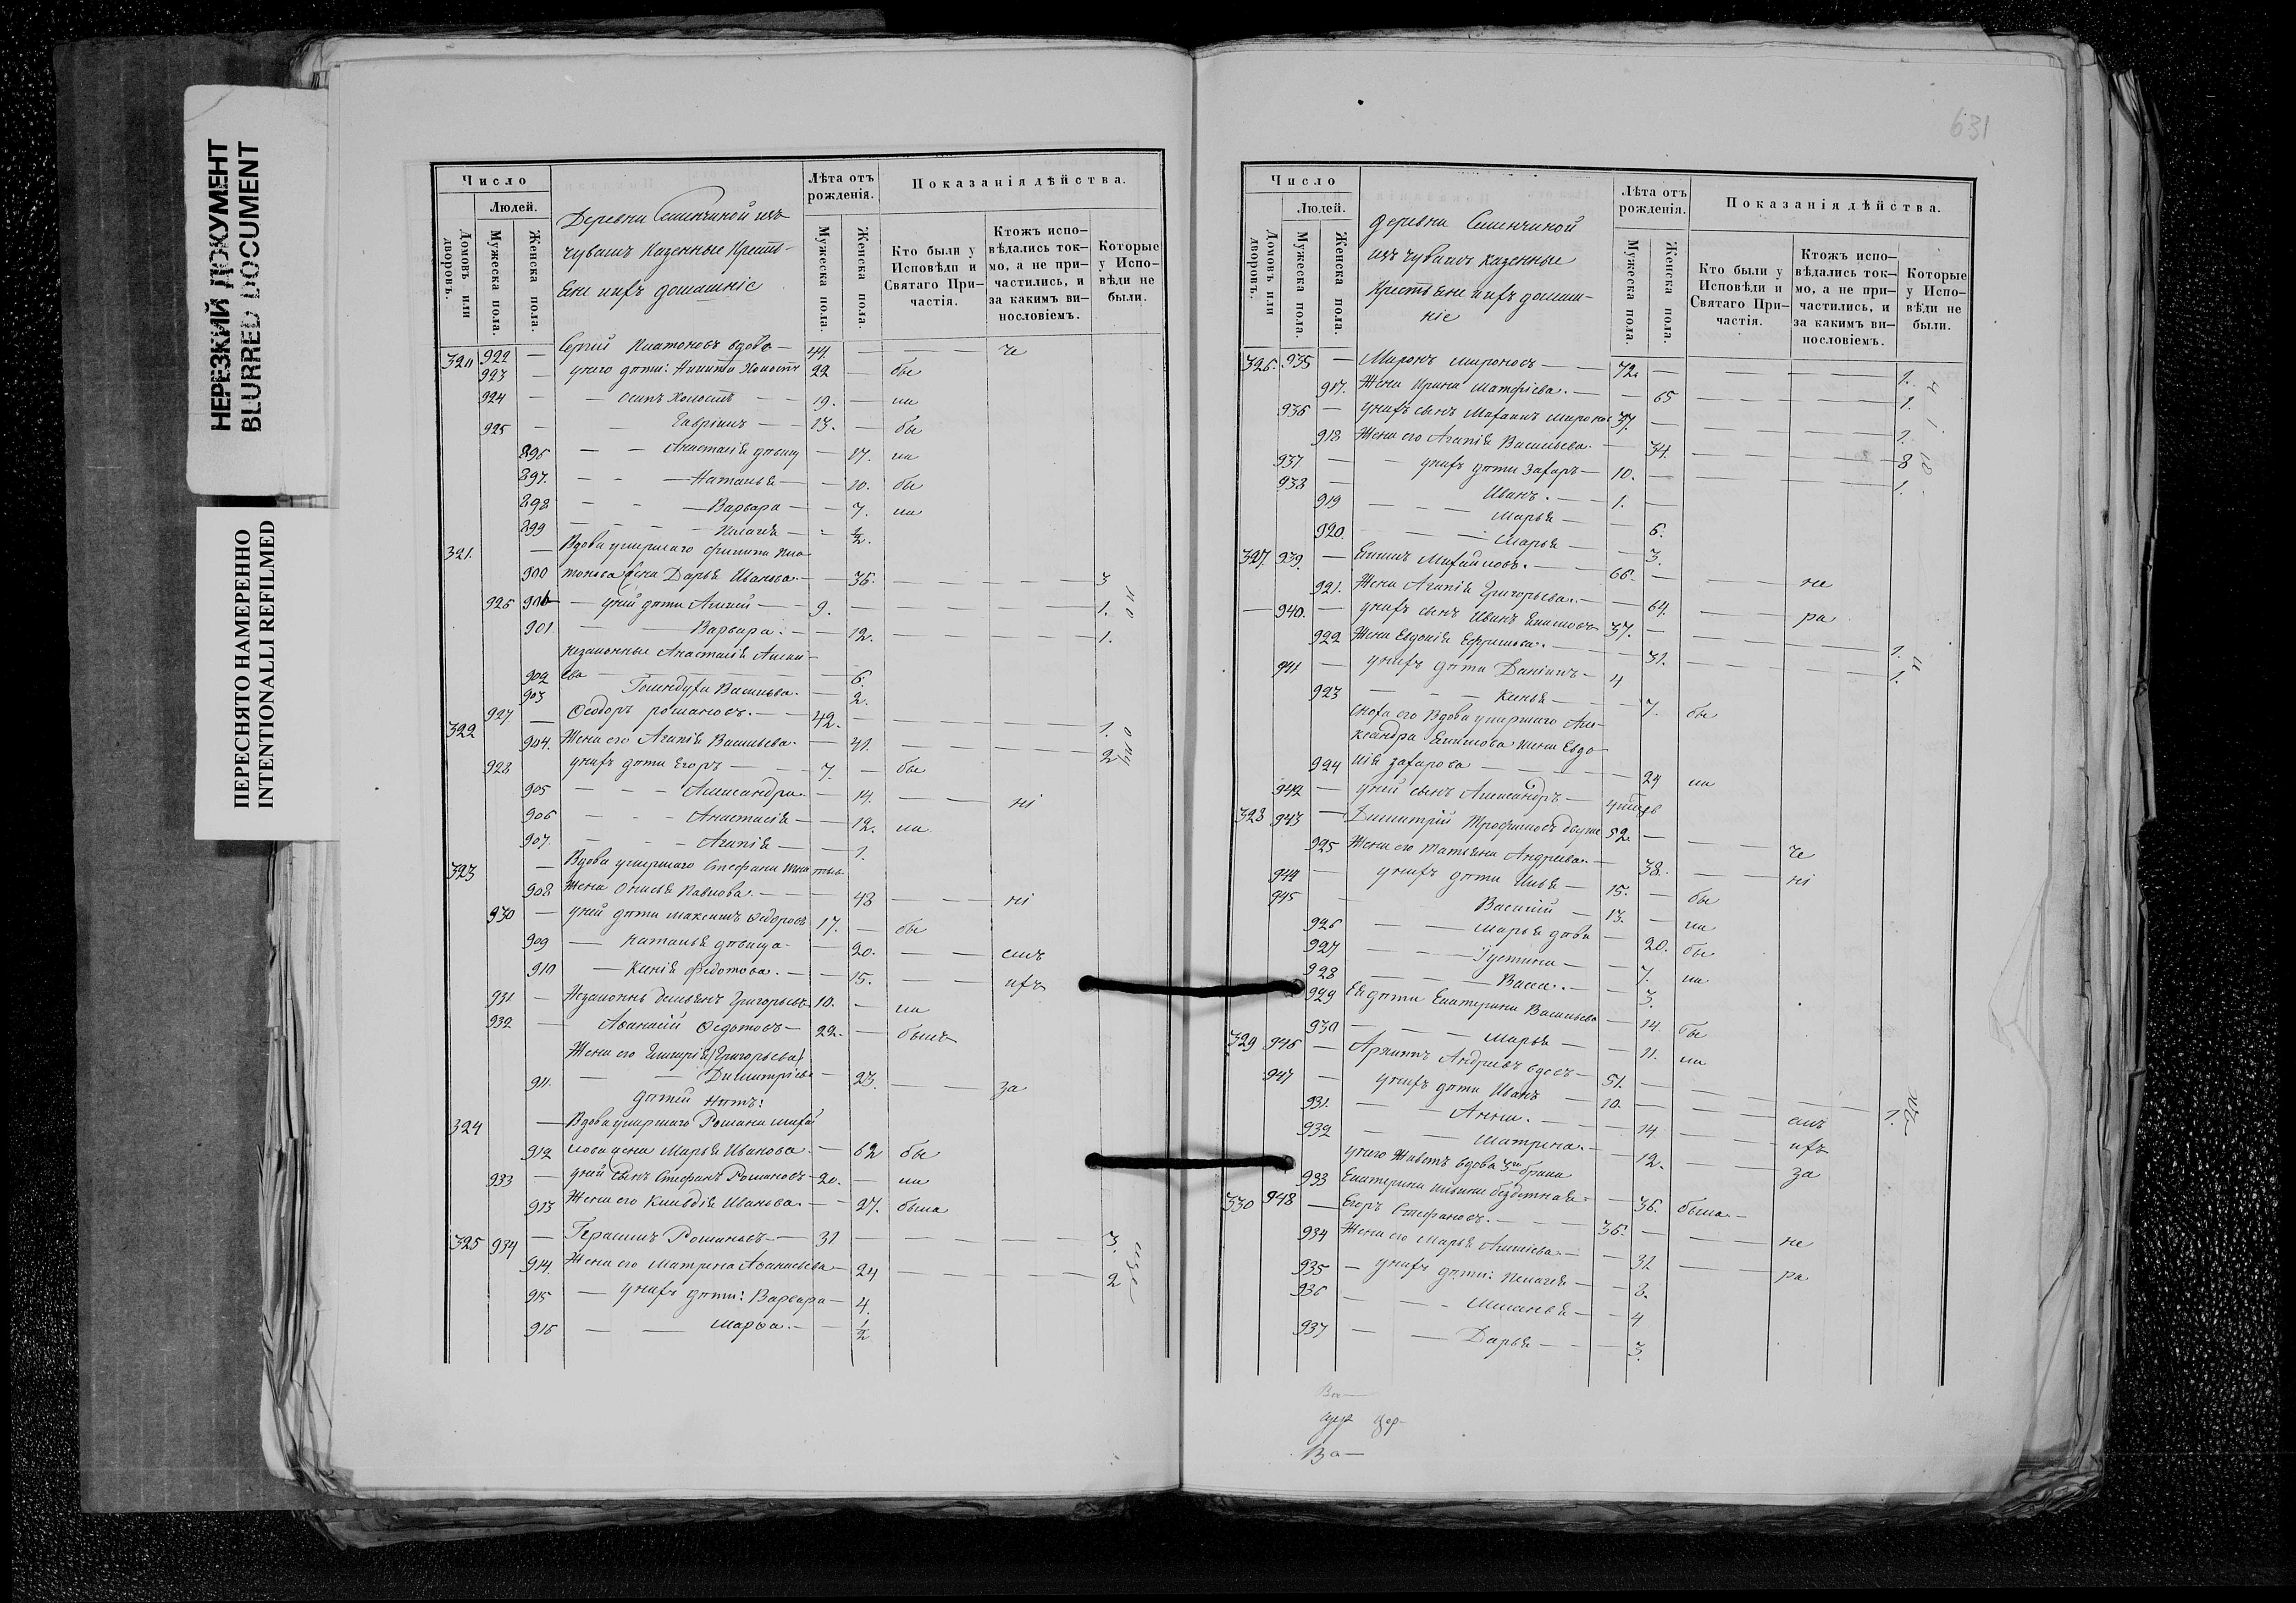 НЕРЕЗКИЙ ДОКУМЕНТ
BLURRED DOCUMENT
ПЕРЕСНЯТО НАМЕРЕННО
INTENTIONALLI REFILMED
Число
Людей.
Домовъ или дворовъ.
Мужеска пола.
Женска пола.
Деревни изъ
чувашъ Казенные Крестья-
ене и ихъ домашніе
Лѣта отъ рожденія.
Мужеска пола.
Женска пола.
Показанія дѣйства.
Кто были у Исповѣди и Святаго При-частія.
Ктожъ испо-вѣдались ток-мо, а не при-частились, и за какимъ ви-нословіемъ.
Которые у Испо-вѣди не были.
320 922 — Сергій Платоновъ вдовъ — 44. — — че
923 — у него дѣти: Никита Холостъ 22 — бы
924 — — Осипъ Холостъ — 19. — ли
925 — — Гавріилъ — 13. — бы
896 — — Анастасія дѣвица — 17. ли
897. — — Наталья — — 10. бы
898 — — Варвара — — 7. ли
899 — — Пелагея — — ½.
321. — Вдова умершаго Филипа Пла-
900 тонова жена Дарья Иванова — — 36. — — 3
926 — у ней дѣти Алексей — 9. — — 1.
901 — — Варвара. — — 12. — — 1.
незаконные Анастасія Алексѣ-
902 ева — — 6.
903 Васильева. — 2.
322 927 — Ѳеодоръ Романовъ. — 42. — — 1.
904. Жена его Агапія Васильева. — 41. — — 2
928 у нихъ дѣти Егоръ — 7. — бы
905 — — Александра — 14. — — ні
906 — — Анастасія — — 12. ли
907. — — Агапія — — 1.
323 — Вдова умершаго Стефана
908 Жена Онисья Павлова. — 48 — — ні
930 — у ней дѣти Максимъ Ѳедоровъ 17. — бы
909 — Наталья дѣвица — 20. — — емъ
910 — Ксенія Ѳедотова. — — 15. — — ихъ
931 — Незаконнъ Демьянъ Григорьевъ 10. — ли
932 — Аѳанасій Ѳедотовъ — 22. — были
Жена его (Григорьева)
911. — — Димитріева — 23. — — за
дѣтей нѣтъ:
324 — Вдова умершаго Романа Михай
912 лова жена Марья Иванова — 62 бы
933 — у ней сынъ Стефанъ Романовъ — 20. — ли
913 Жена его Клавдія Иванова. — 27. была
325 934 — Герасимъ Романовъ — 31 — — 3.
914. Жена его Матрена Аѳанасьева — 24 — — 2
915 — у нихъ дѣти: Варвара — 4.
916 — — Марѳа. — — ½
631
Число
Людей.
Домовъ или дворовъ.
Мужеска пола.
Женска пола.
деревни
изъ чувашъ казенные
Крестьяне и ихъ домаш-
ніе
Лѣта отъ рожденія.
Мужеска пола.
Женска пола.
Показанія дѣйства.
Кто были у Исповѣди и Святаго При-частія.
Ктожъ испо-вѣдались ток-мо, а не при-частились, и за какимъ ви-нословіемъ.
Которые у Испо-вѣди не были.
326. 935 — Миронъ Мироновъ — 72. — — 1.
917. Жена Ирина Матфіева. — — 65 — — 1.
936 — у нихъ сынъ Михаилъ Мироновъ 37. — —
918 Жена его Агапія Васильева — 34. — — 8
937. — — у нихъ дѣти Захаръ — 10. — — 1.
938 — Иванъ. — 1. —
919 — — Марья — — 6.
920. — — Марья — — 3.
327. 939. — Михайловъ. — 66. — — не
921. Жена Агапія Григорьева. — — 64. — — ра
940. — у нихъ сынъ Иванъ — 37. — — 1.
922 Жена Евдокія Ефремова. — — 31. — — 1.
941 — у нихъ дѣти Даніилъ — 4
923 — — Ксенья — — 7. бы
сноха его Вдова умершаго Але-
ксандра жена Евдо-
924 кія Захарова — — 24 ли
942 — у ней сынъ Александръ —
328 943 — Димитрій Трофимовъ 52. — — че
925 Жена его Татьяна Андреева. — 38. — — ні
944 — у нихъ дѣти Илья — 15. — бы
945 — Василій — 13. — ли
926 — — Марья дѣви — 20. бы
927 — — Іустина — — 7. ли
928 — — Васса. — — 3.
929 Ея дѣти Екатерина Васильева — 14. бы
930 — — Марья — — 11. ли
329 946 — Архипъ Андреевъ вдовъ — 51. — — 1.
947 — у нихъ дѣти Иванъ — 10. — — емъ
931. — — Анна. — — 14 — — ихъ
932 — — Матрена. — — 12. — — за
у него живетъ вдова 3го брака
933 Екатерина Ильина бездѣтная — 36. была. —
330 948 — Егоръ Стефановъ. — 36. — — не
934 Жена его Марья Алексіева. — — 32 — — ра
935 — у нихъ дѣти: Пелагея — — 8.
936 — — Меланья — — 4
937 — — Дарья — — 3.
Ва—
Ва—